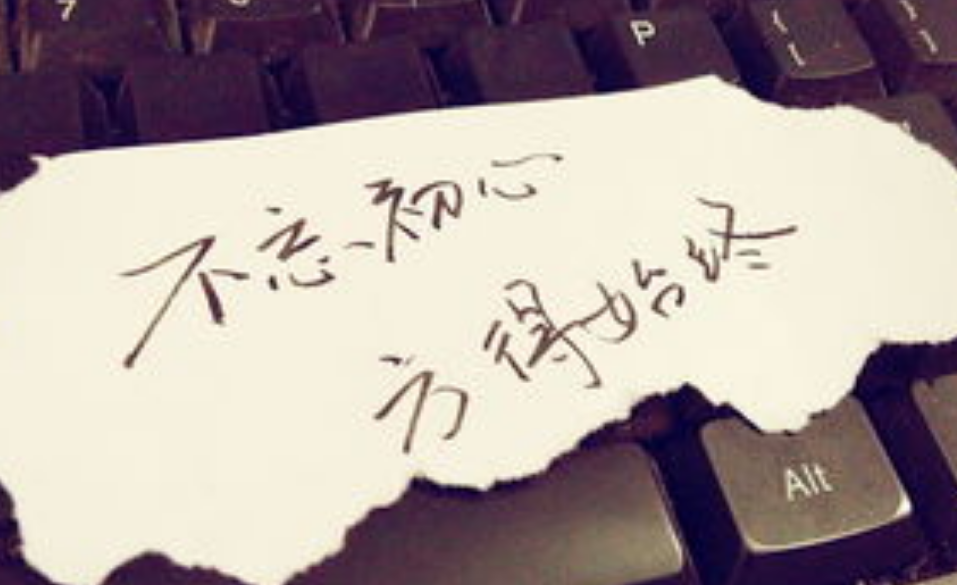 P
{ [
} ]
不忘初心
方得始终
Alt